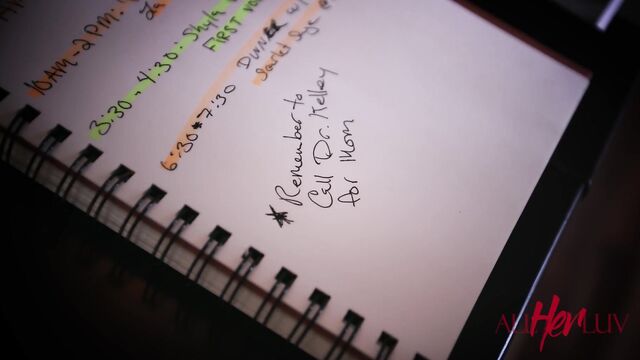 10AM-2PM:
3:30-4:30: Shyla
FIRST
6:30*7:30 DINNER w/
* Remember to
Call Dr. Kelley
for Mom
ALL Her LUV